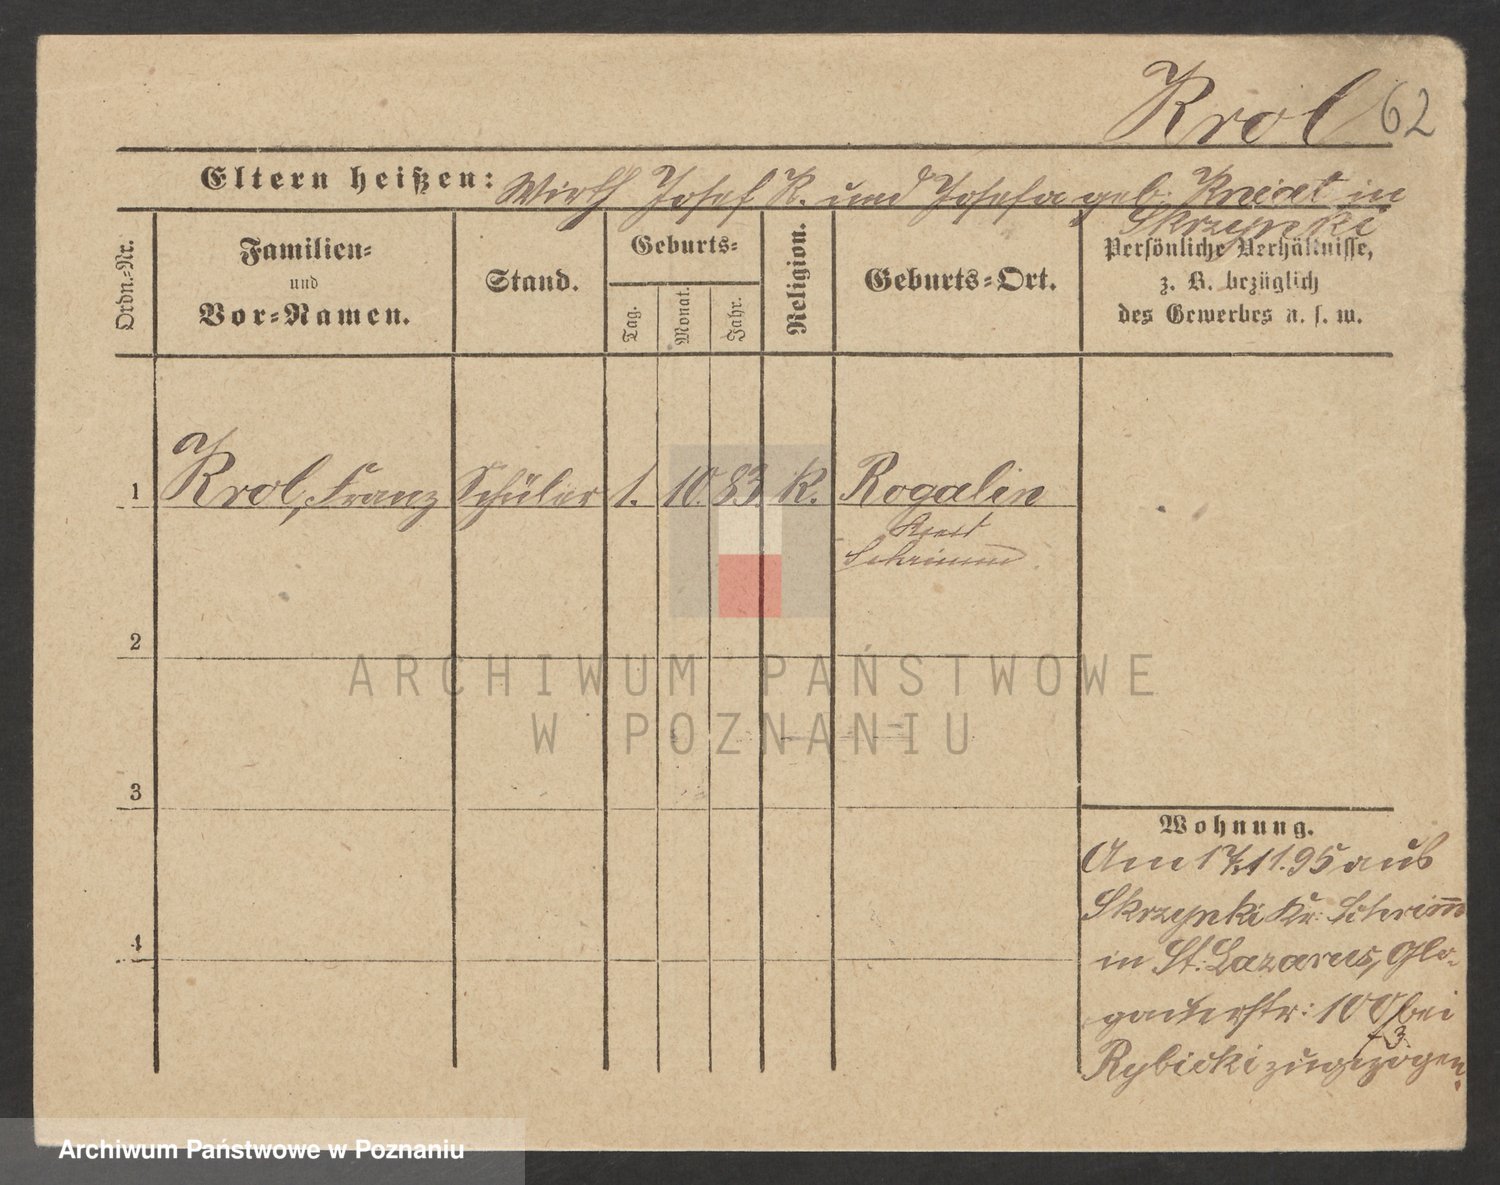 Krol 62
Eltern heißen: Wirth Josef K. und Josefa geb. Kniat in
Skrzynki
Ordn.-Nr.
Familien-
und
Vor-Namen.
Stand.
Geburts-
Tag.
Monat.
Jahr.
Religion.
Geburts-Ort.
Persönliche Verhältnisse,
z. B. bezüglich
des Gewerbes u. s. w.
1 Krol, Franz Schüler 1. 10. 83. K. Rogalin
Schrimm
2
3
4
Wohnung.
Am 17/11.95 aus
Skrzynki Kr. Schrimm
in St. Lazarus, Glo-
gauerstr: 100 bei
Rybicki zugezogen.
ARCHIWUM PAŃSTWOWE
W POZNANIU
Archiwum Państwowe w Poznaniu